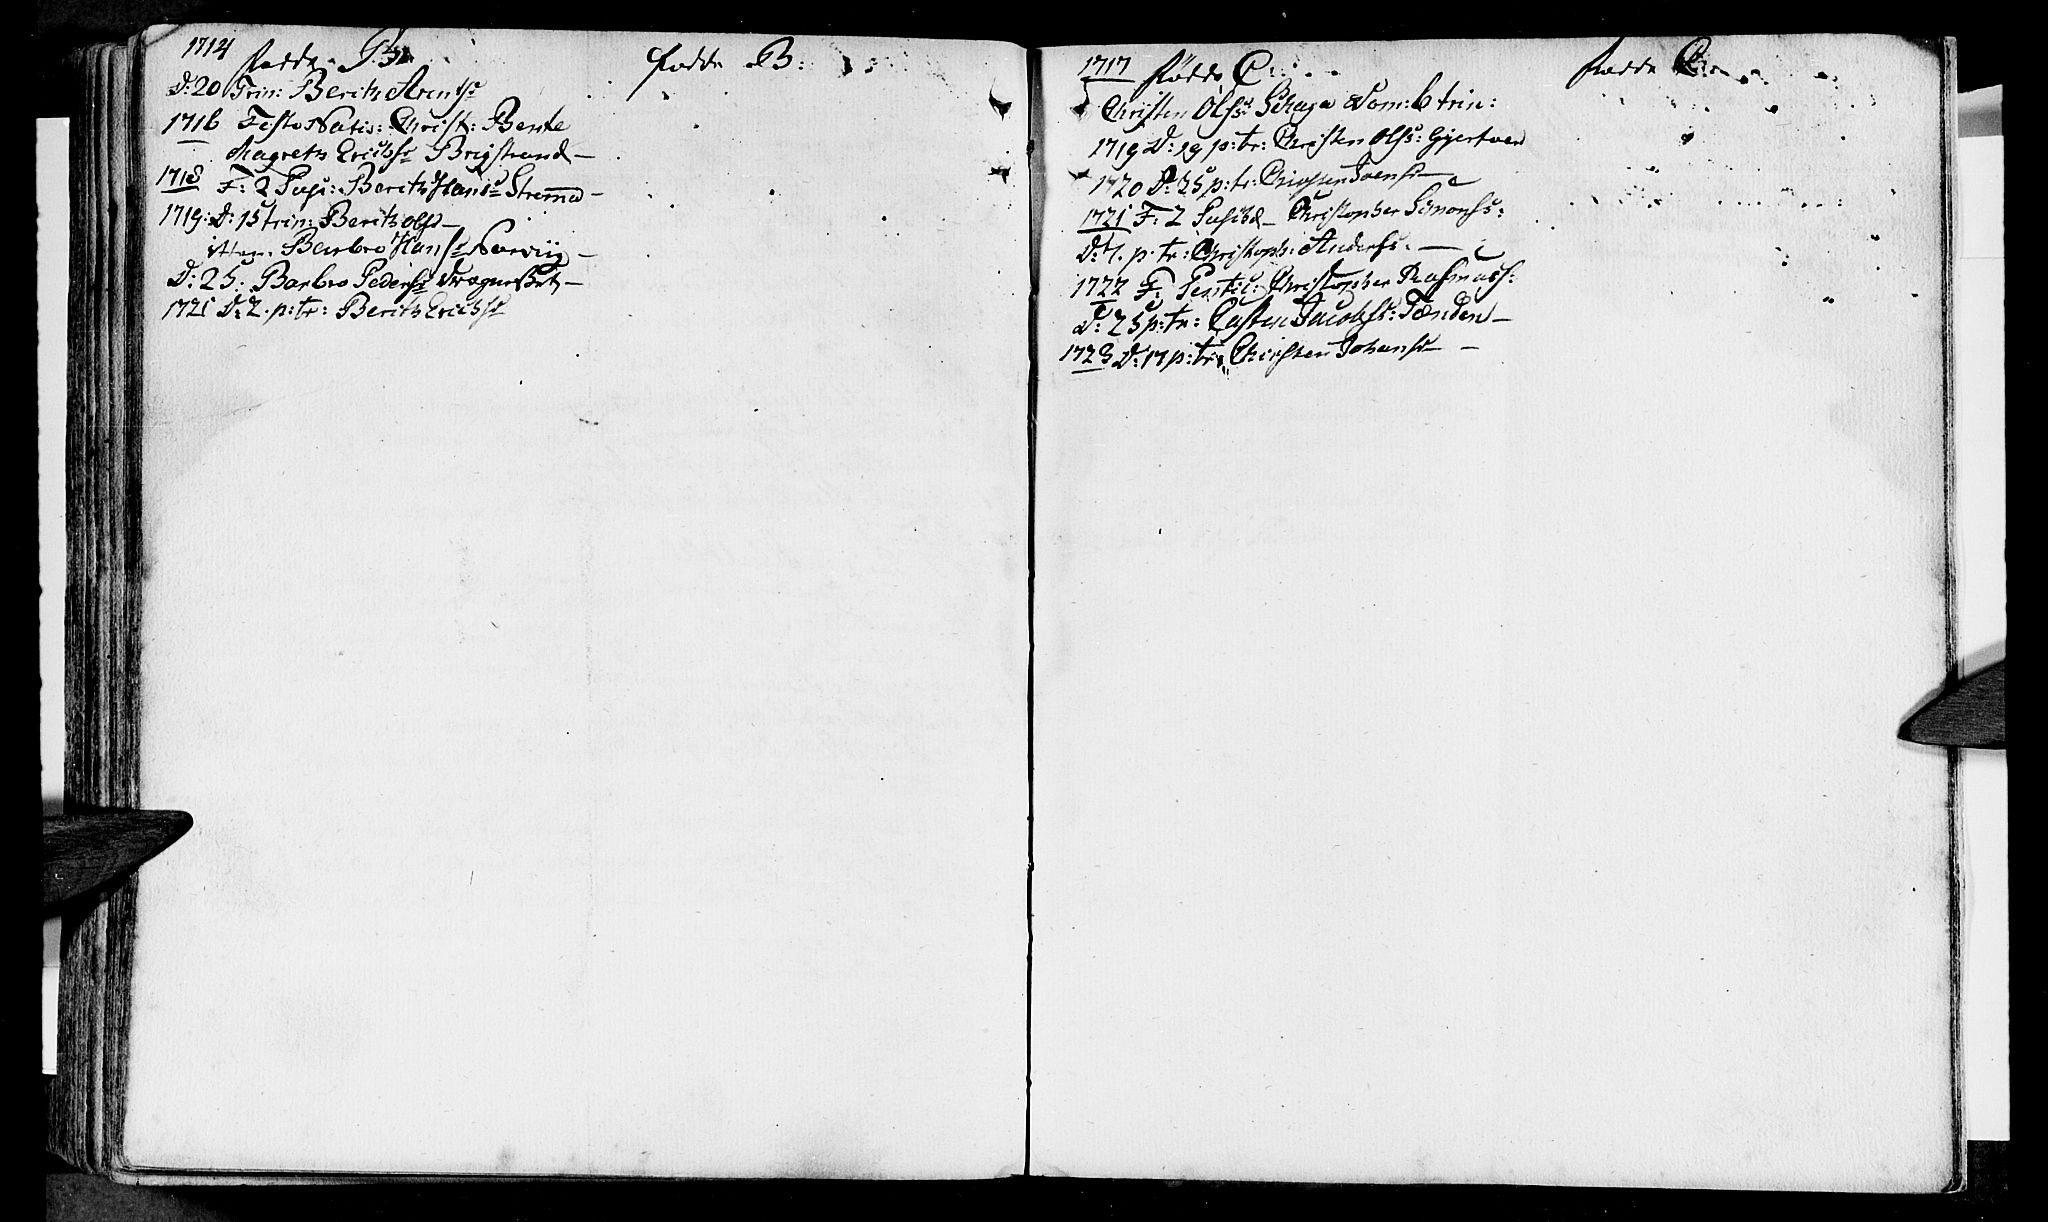 1714 fødde B:
D: 20 Trin: Berith Arentsd
1716 Festo Nativ: Christ: Bente
Magreth Erichsd Brigstrand –
1718 F: 2 Pasc: Berith Hansd Strømmo –
1719: D: 15 trin: Berith Olsd –
item. Barbro Hansd Norviig –
D: 25. Barbro Pedersd Drægneset –
1721 D: 2. p: tr: Berith Erichsd
fødde B:
1717 fødde C
Christen Olss: Schaga Dom: 6 trin:
1719 D: 19 p: tr: Christen Olss: Gjertven
1720 D: 25 p: tr: Christen Ivenss –
1721 F: 2 Pasch – Christopher Simonss:
D: 7. p: tr: Christoph: Anderss. –
1722 F: Pentic: Christopher Rasmuss:
D: 25 p: tr: Casten Jacobss: Tønden –
1723 D: 17 p: tr: Christen Johanss –
fødde C